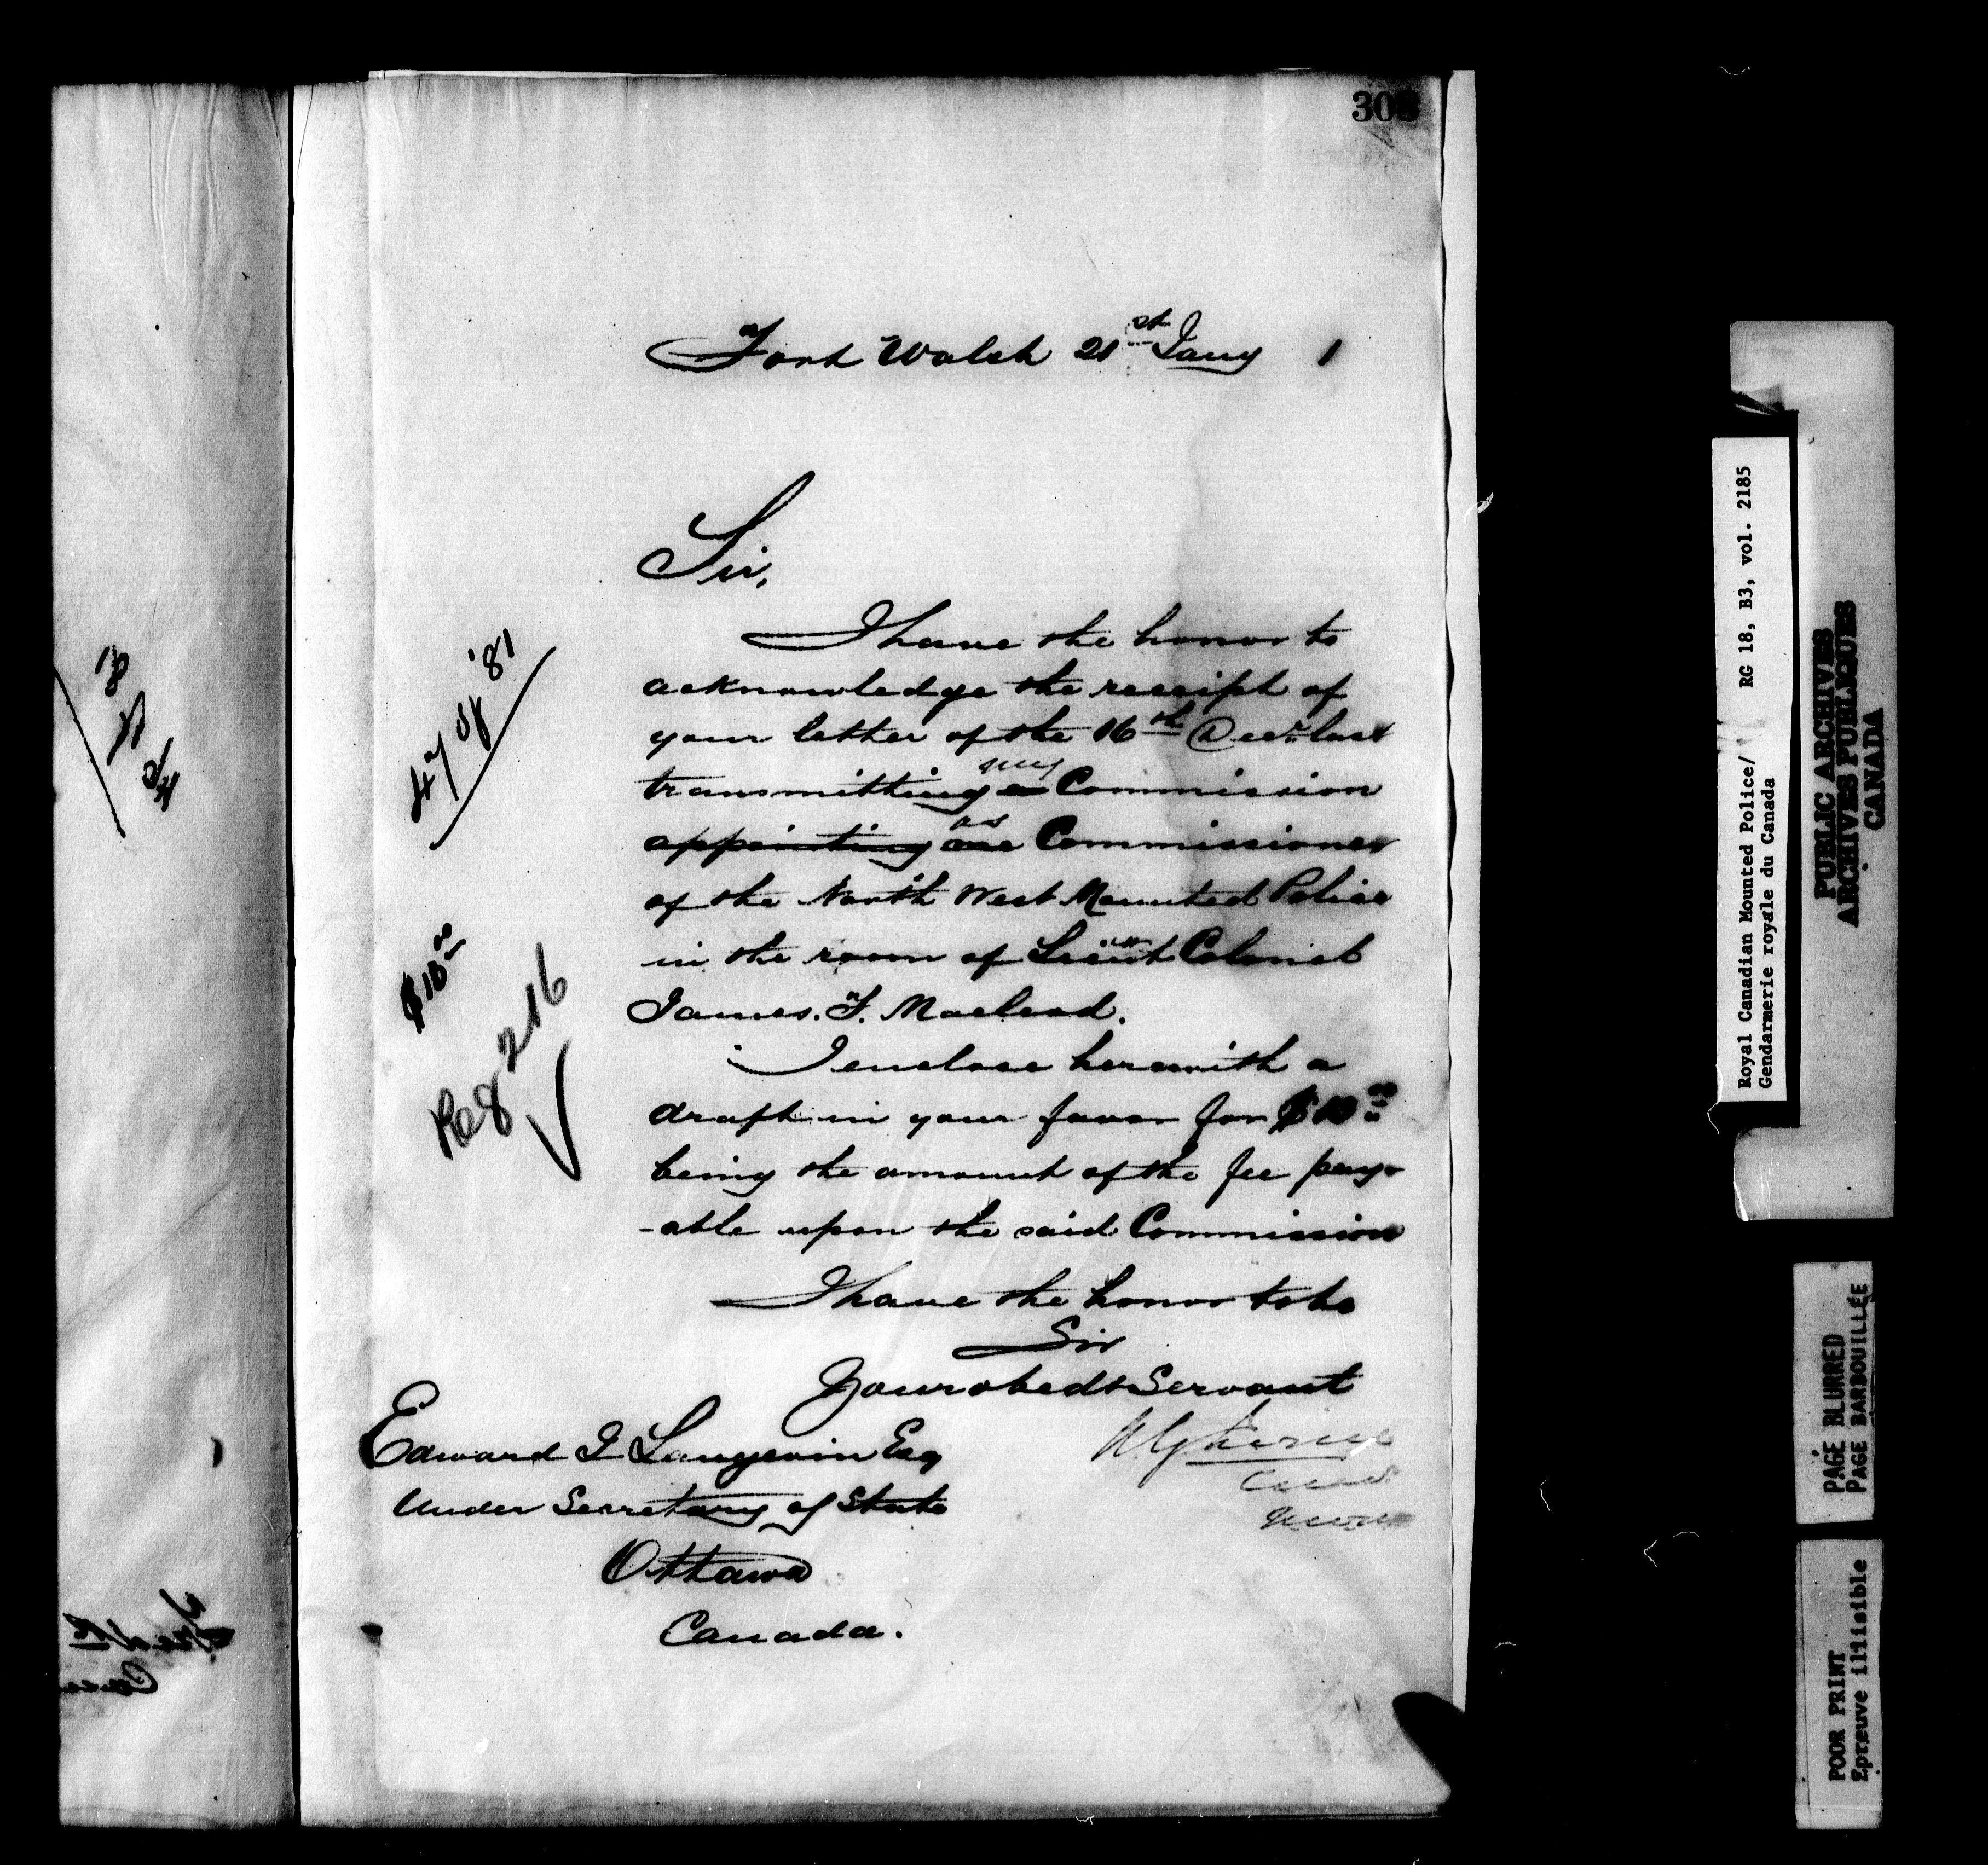 Fort Walsh 21st Jany 1
Sir,
I have the honor to
acknowledge the receipt of
your letter of the 16th Decr. last
my
transmitting a Commission
as
appointing me Commissioner
of the North West Mounted Police
in the room of Lieut Colonel
James. F. Macleod.
I enclose herewith a
draft in your favor for $10.00
being the amount of the fee pay-
-able upon the said Commission
I have the honor to be
Sir
Your obedt Servant
Edward J Langevin Esq
Under Secretary of State
Ottawa
Canada.
47 of '81
$10.00
216
Royal Canadian Mounted Police/ RG 18, B3, vol. 2185
Gendarmerie royale du Canada
PUBLIC ARCHIVES
ARCHIVES PUBLIQUES
CANADA
PAGE BLURRED
PAGE BARBOUILLÉE
POOR PRINT
Epreuve illisible